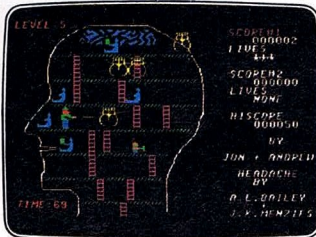 LEVEL:5
SCORE#1
000002
LIVES
SCORE#2
000000
LIVES
NONE
HISCORE
000050
BY
JON + ANDREW
HEADACHE
BY
A.L.BAILEY
J.K.MENZIES
TIME:69